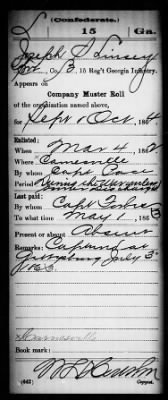 (Confederate.)
15 Ga.
Joseph S Linsey
Co. B, 15 Reg't Georgia Infantry.
Appears on
Company Muster Roll
of the organization named above,
for Sept & Oct, 1864
Enlisted:
When Mar 4, 1862
Where
By whom Capt
Period During the war unless sooner discharged
Last paid:
By whom Capt Forbes
To what time May 1, 1863
Present or absent Absent
Remarks: Captured at
Gettysburg July 3d
1863
Book mark:
(642) Copyist.